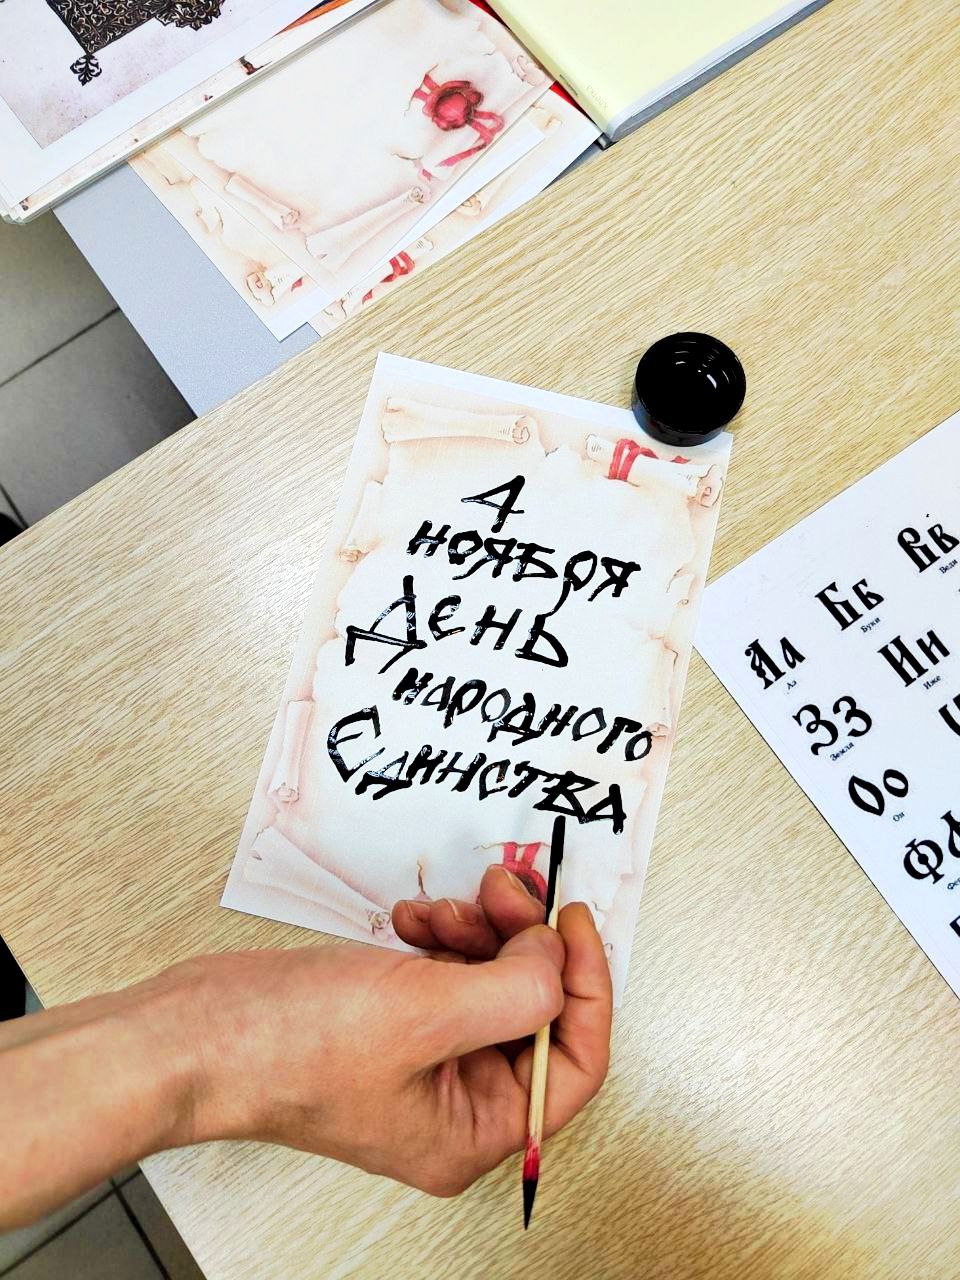 4
ноября
День
народного
Единства
Аа
Аз
Бб
Буки
Вв
Веди
Зз
Земля
Ии
Иже
Оо
Он
Фф